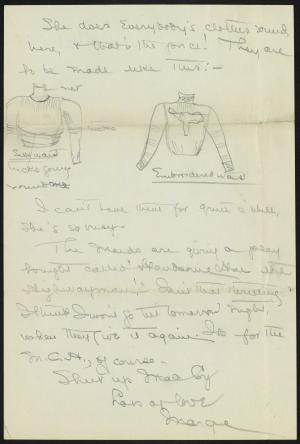 She does Everybody's clothes round
here, & that's the price! They are
to be made like this:—
net
tucks
Silk waist
tucks going
round
Embroidered waist
I can't have them for quite a while,
she's so busy—
The Maids are giving a play
tonight called "Handsome the
Highwayman"! Isn't that thrilling?
I think I won't go 'til tomorrow night,
when they give it again. It's for the
of course—
Shut up
Lots of love